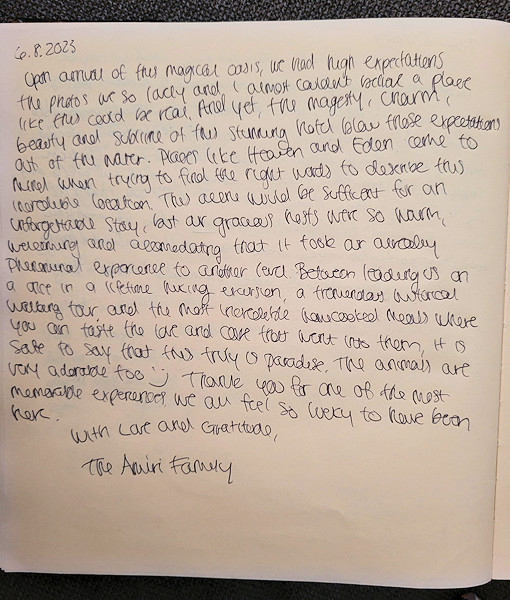 6.8.2023
Upon arrival of this magical oasis, we had high expectations
the photos we so lovely and, I almost couldn't believe a place
like this could be real. And yet, the magesty, charm,
beauty and sublime of this stunning hotel blow those expectations
out of the water. Places like Heaven and Eden come to
mind when trying to find the right words to describe this
incredible location. This alone would be sufficent for an
unforgettable stay, but our gracious hosts were so warm,
welcoming and accomedating that it took our already
phenominal experience to another level. Between leading us on
a once in a lifetime hiking excursion, a tremendous historical
walking tour and the most incredible homecooked meals where
you can taste the love and care that went into them, it is
safe to say that this truly is paradise. The animals are
very adorable too :) Thank you for one of the most
memorable experiences we all feel so lucky to have been
here.
With Love and Gratitude,
The Amiri Family